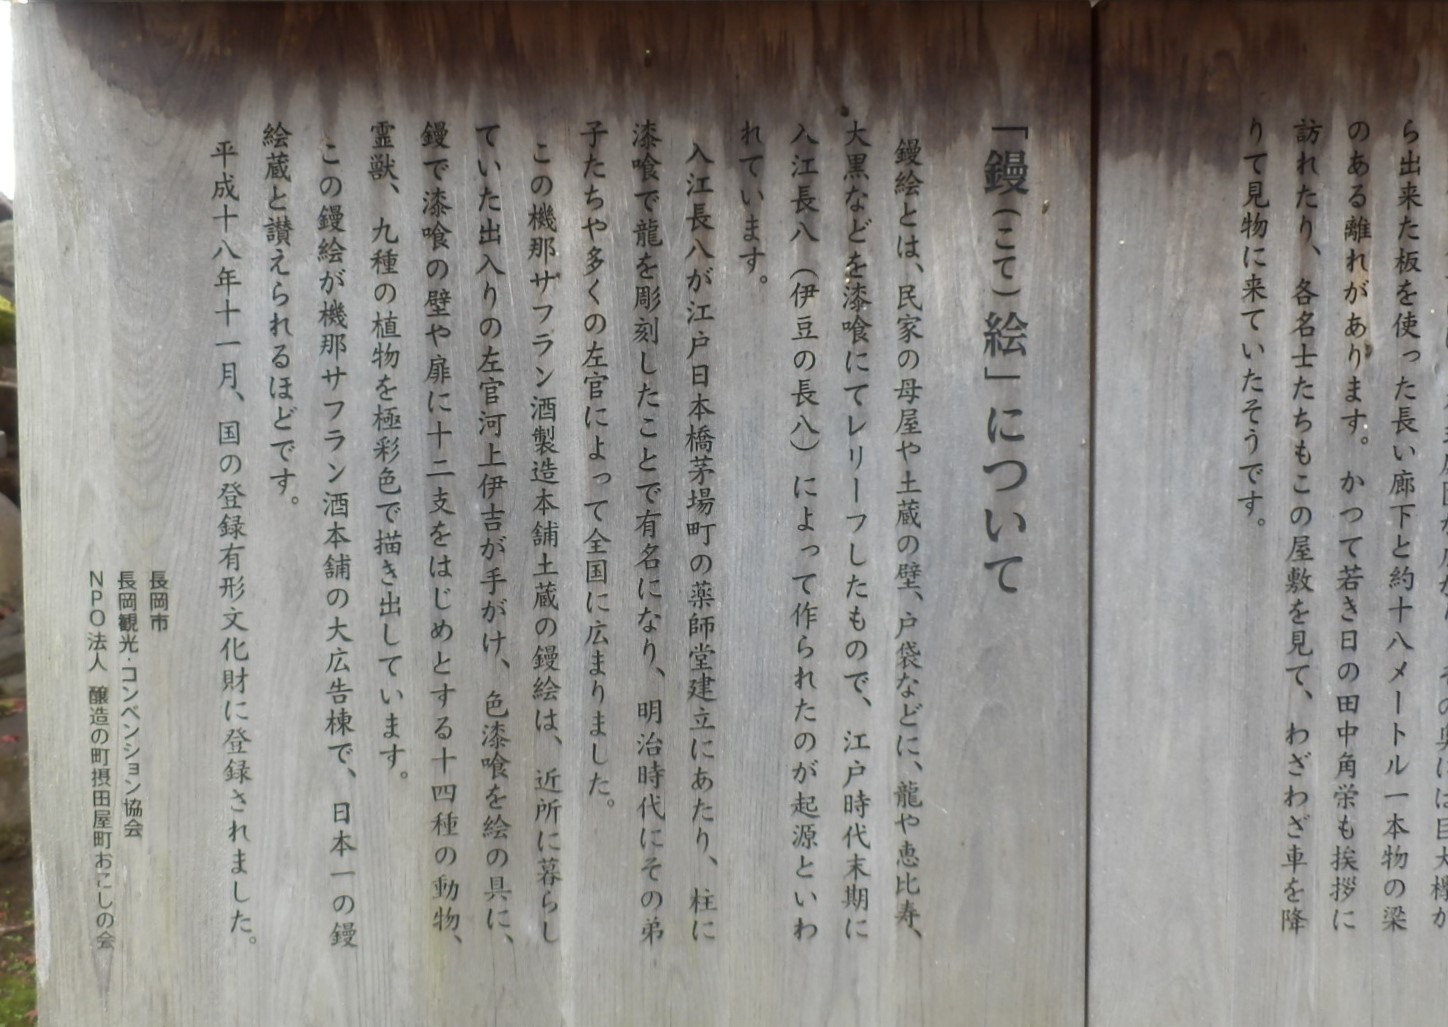 ら出来た板を使った長い廊下と約十八メートル一本物の梁
のある離れがあります。かつて若き日の田中角栄も挨拶に
訪れたり、各名士たちもこの屋敷を見て、わざわざ車を降
りて見物に来ていたそうです。
「鏝(こて)絵」について
鏝絵とは、民家の母屋や土蔵の壁、戸袋などに、龍や恵比寿、
大黒などを漆喰にてレリーフしたもので、江戸時代末期に
入江長八(伊豆の長八)によって作られたのが起源といわ
れています。
入江長八が江戸日本橋茅場町の薬師堂建立にあたり、柱に
漆喰で龍を彫刻したことで有名になり、明治時代にその弟
子たちや多くの左官によって全国に広まりました。
この機那サフラン酒製造本舗土蔵の鏝絵は、近所に暮らし
ていた出入りの左官河上伊吉が手がけ、色漆喰を絵の具に、
鏝で漆喰の壁や扉に十二支をはじめとする十四種の動物、
霊獣、九種の植物を極彩色で描き出しています。
この鏝絵が機那サフラン酒本舗の大広告棟で、日本一の鏝
絵蔵と讃えられるほどです。
平成十八年十一月、国の登録有形文化財に登録されました。
長岡市
長岡観光・コンベンション協会
NPO法人 醸造の町摂田屋町おこしの会